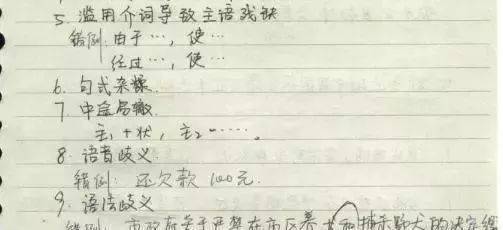 5. 滥用介词导致主语残缺
错例: 由于…, 使…
经过…, 使…
6. 句式杂糅.
7. 中途易辙
主₁ + 状, 主₂……。
8. 语音歧义
错例: 还欠款 100元.
9. 语法歧义
错例: 市政府关于严禁在市区养犬和捕杀野犬的决定